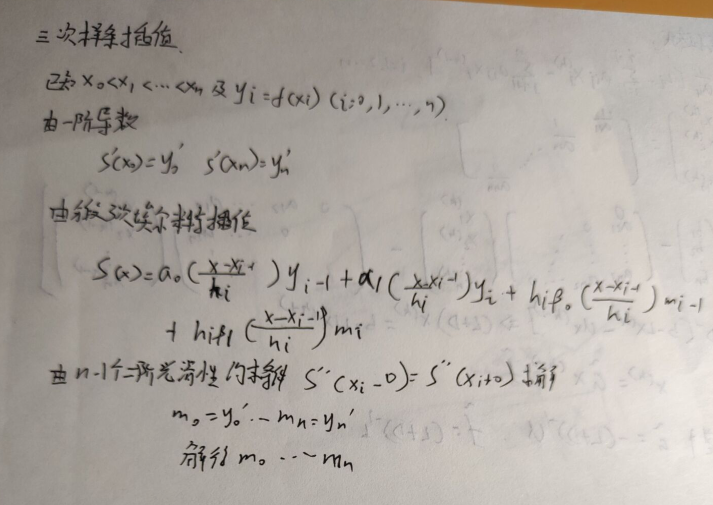 三次样条插值
已知 x₀<x₁<…<xₙ 及 yᵢ=f(xᵢ) (i=0,1,…,n)
由一阶导数
S'(x₀)=y₀' S'(xₙ)=yₙ'
由分段3次埃尔米特插值
S(x)=α₀((x-xᵢ₋₁)/hᵢ)yᵢ₋₁+α₁((x-xᵢ₋₁)/hᵢ)yᵢ+hᵢβ₀((x-xᵢ₋₁)/hᵢ)mᵢ₋₁
+hᵢβ₁((x-xᵢ₋₁)/hᵢ)mᵢ
由n-1个二阶光滑性约束条件 S''(xᵢ-0)=S''(xᵢ+0) 求解
m₀=y₀'…mₙ=yₙ'
解得m₀…mₙ